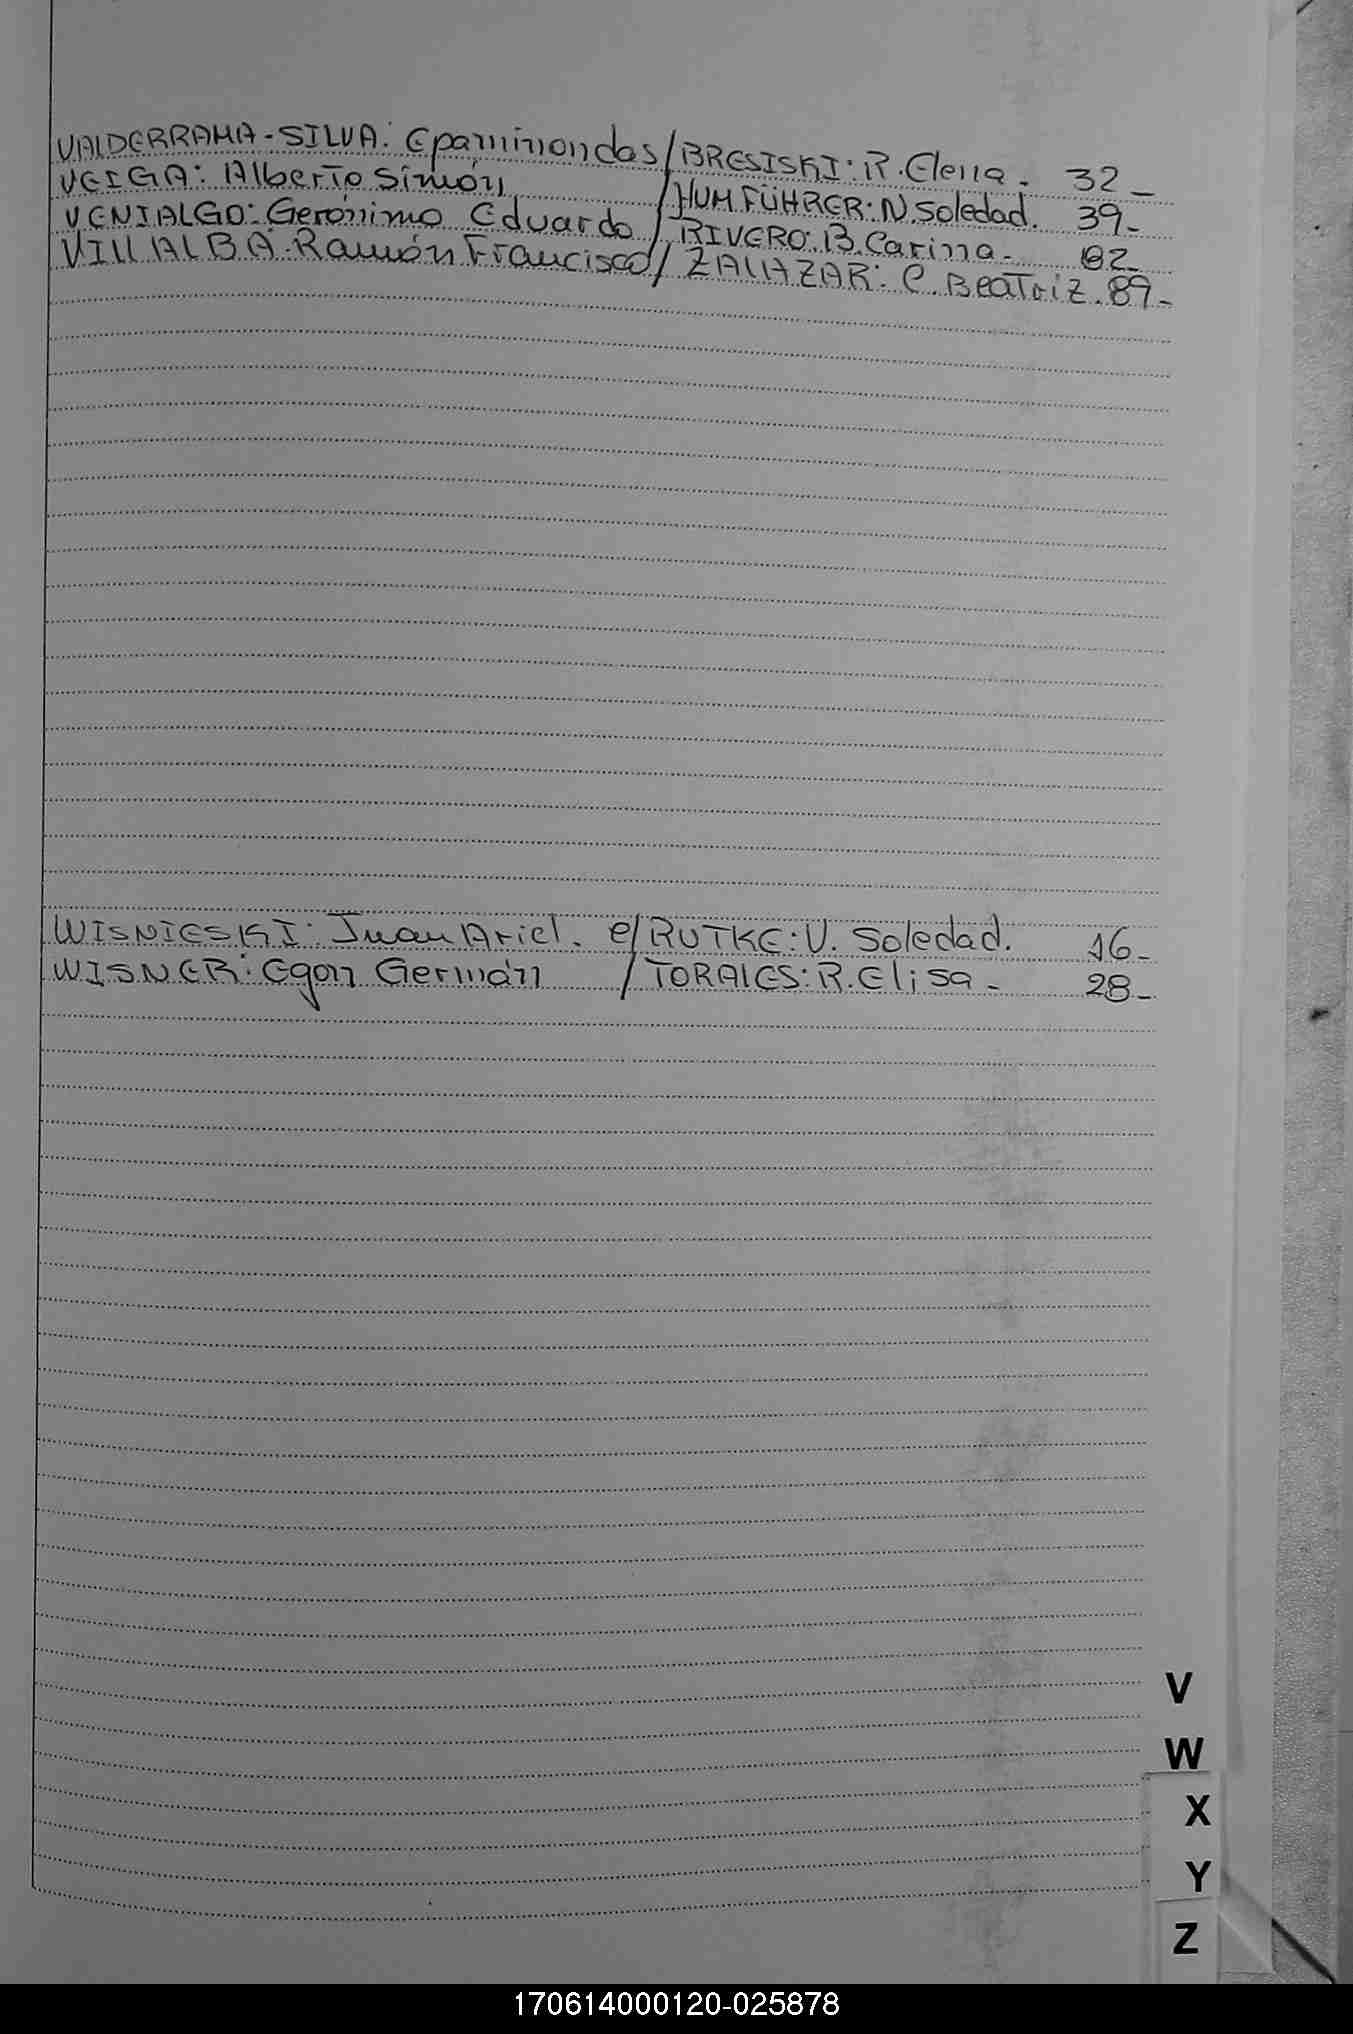 VALDERRAMA-SILVA: Epaminondas / BRESISKI: R. Elena. 32_
VEIGA: Alberto Simón / HUMFÜHRER: N. Soledad. 39_
VENIALGO: Gerónimo Eduardo / RIVERO: B. Carina. 82_
VILLALBA: Ramón Francisco / ZALAZAR: C. Beatriz. 89_
WISNIESKI: Juan Ariel. e/ RUTKE: V. Soledad. 16_
WISNER: Egon Germán / TORALES: R. Elisa - 28_
V
W
X
Y
Z
170614000120-025878